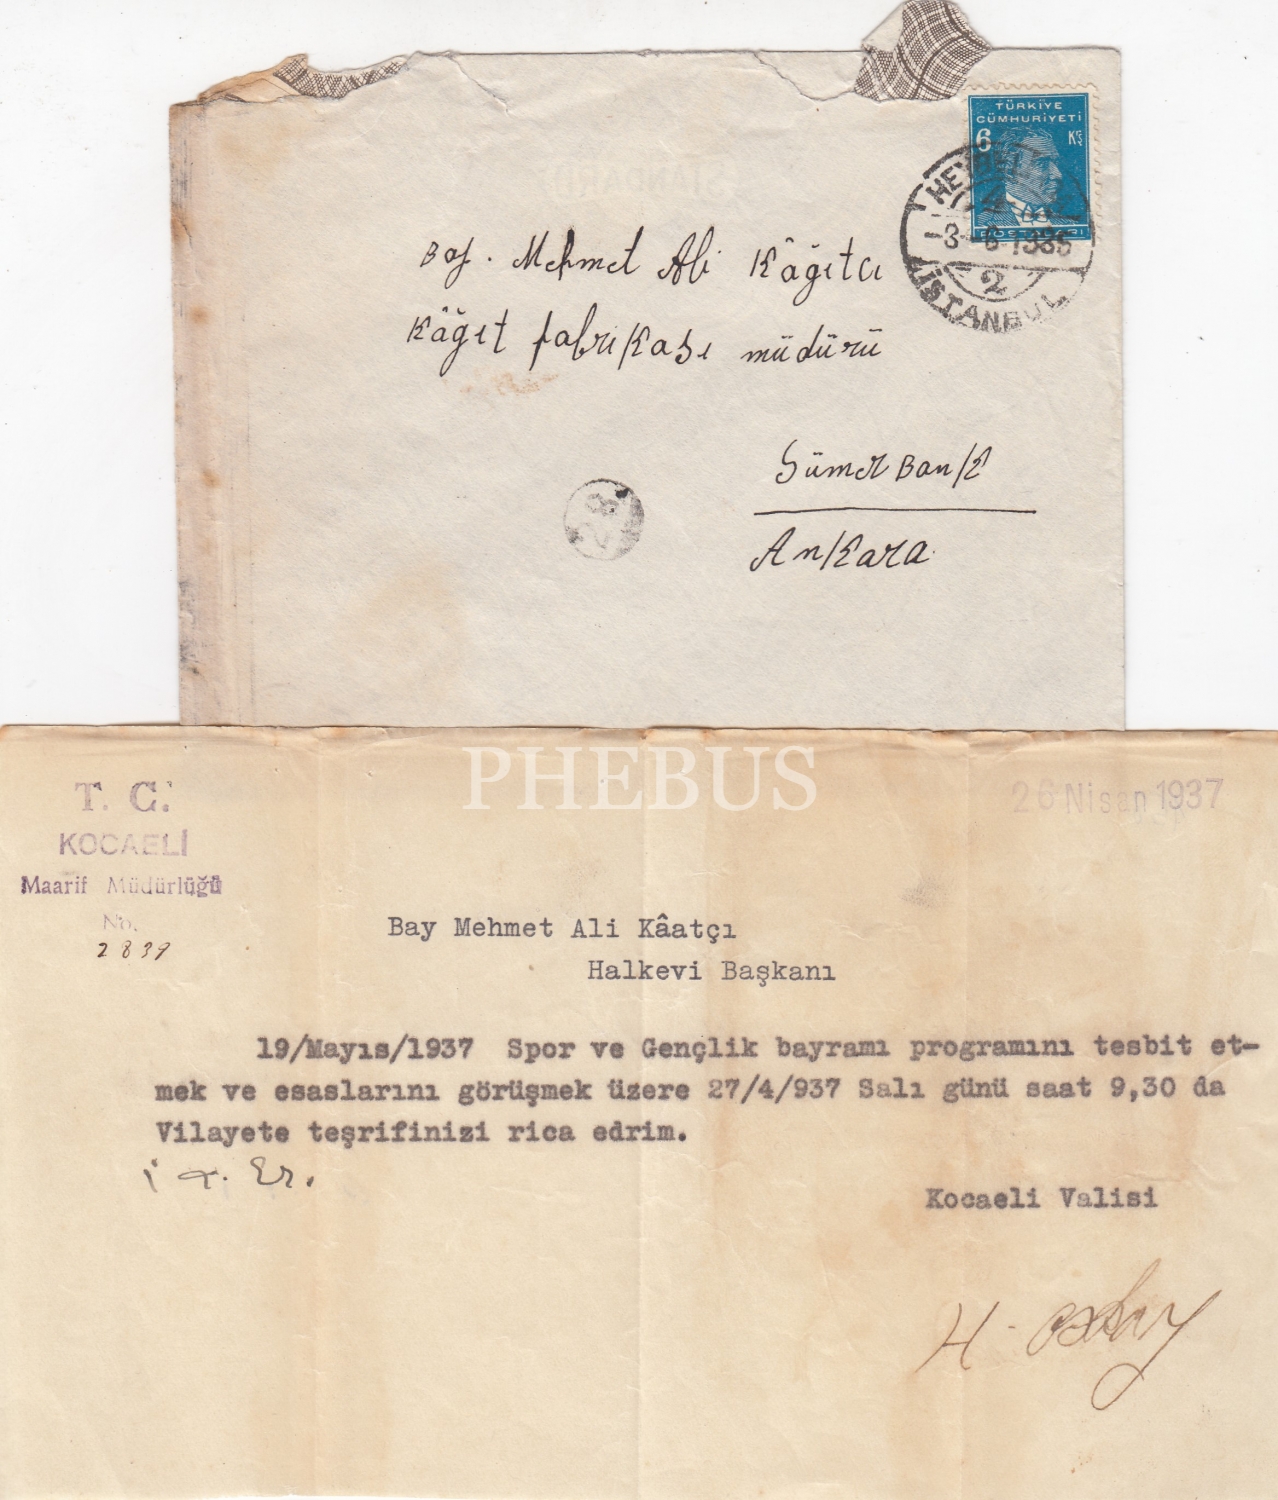 TÜRKİYE
CÜMHURİYETİ
6 Kş
POSTALARI
-3-6-1936
2
İSTANBUL
Bay. Mehmet Ali Kâğıtcı
Kâğıt fabrikası müdürü
Sümer Bank
Ankara
PHEBUS
T. C.
KOCAELİ
Maarif Müdürlüğü
No.
2839
26 Nisan 1937
Bay Mehmet Ali Kâatçı
Halkevi Başkanı
19/Mayıs/1937 Spor ve Gençlik bayramı programını tesbit et-
mek ve esaslarını görüşmek üzere 27/4/937 Salı günü saat 9,30 da
Vilayete teşrifinizi rica edrim.
Kocaeli Valisi